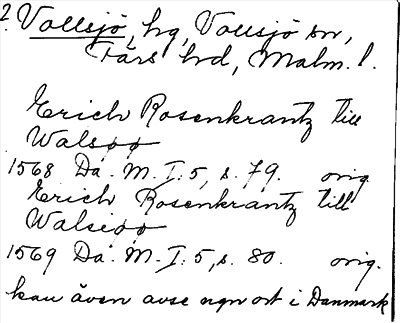 2. Vollsjö, hg, Vollsjö sn,
Färs hd, Malm. l.
Erich Rosenkrantz till
Walsøø
1568 Da. M. I:5, s. 79. orig.
Erich Rosenkrantz till
Walsiøø
1569 Da. M. I:5, s. 80. orig.
kan även avse ngn ort i Danmark